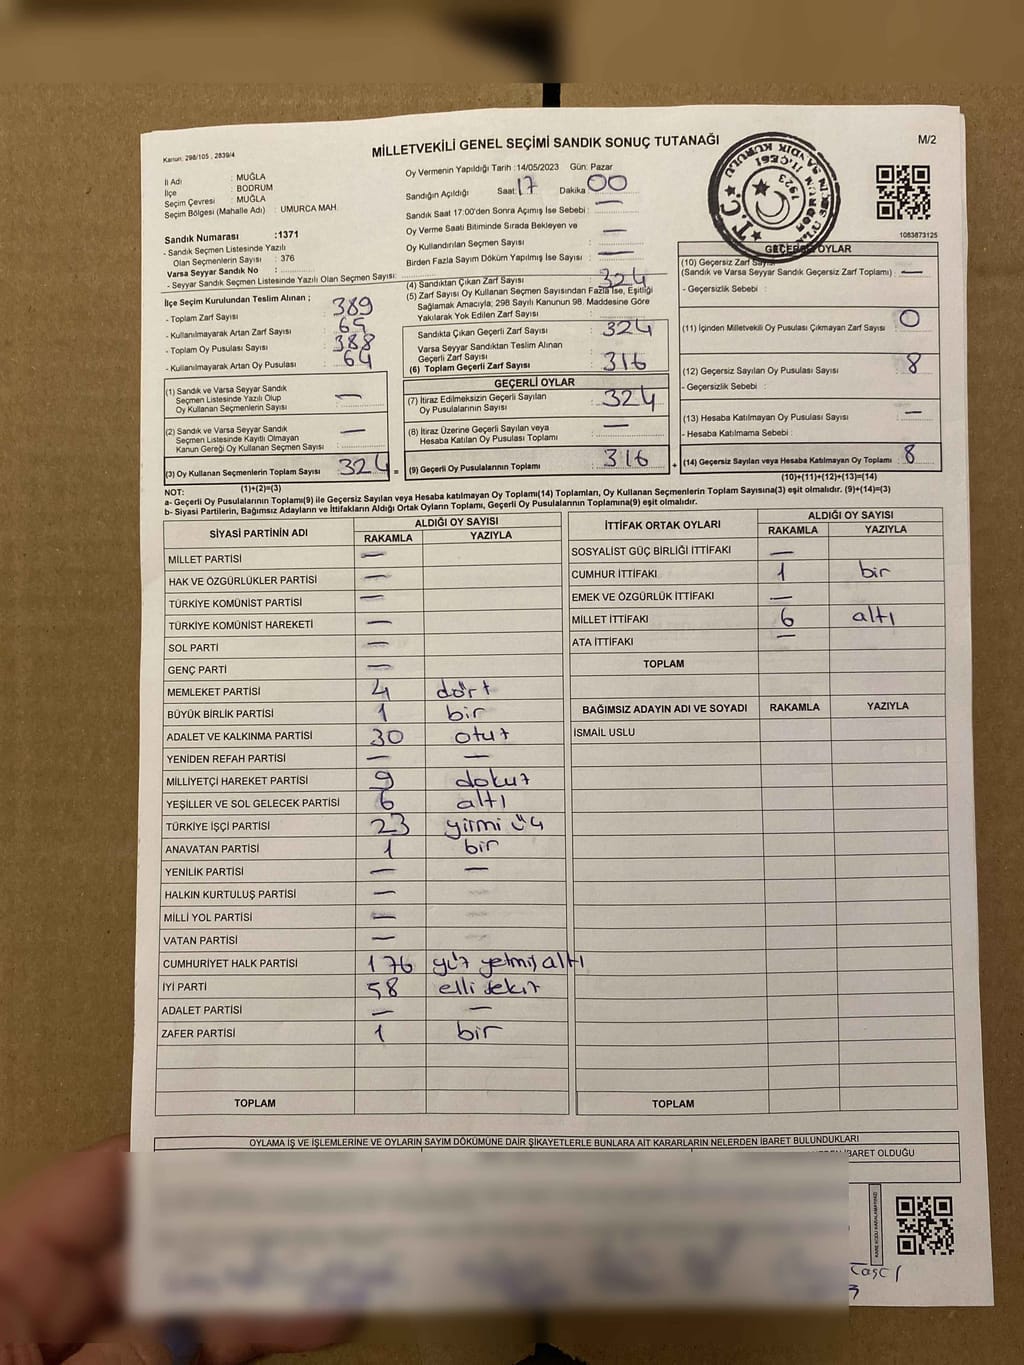 Kanun: 298/105 , 2839/4
MİLLETVEKİLİ GENEL SEÇİMİ SANDIK SONUÇ TUTANAĞI
M/2
İl Adı : MUĞLA
İlçe : BODRUM
Seçim Çevresi : MUĞLA
Seçim Bölgesi (Mahalle Adı) : UMURCA MAH.
Sandık Numarası :1371
- Sandık Seçmen Listesinde Yazılı
Olan Seçmenlerin Sayısı : 376
Varsa Seyyar Sandık No :
- Seyyar Sandık Seçmen Listesinde Yazılı Olan Seçmen Sayısı:
Oy Vermenin Yapıldığı Tarih :14/05/2023 Gün: Pazar
Sandığın Açıldığı Saat: 17 Dakika 00
Sandık Saat 17:00'den Sonra Açımış İse Sebebi : —
Oy Verme Saati Bitiminde Sırada Bekleyen ve
Oy Kullandırılan Seçmen Sayısı : —
Birden Fazla Sayım Döküm Yapılmış İse Sayısı : —
T.C.
1923
1083873125
İlçe Seçim Kurulundan Teslim Alınan ;
- Toplam Zarf Sayısı : 389
- Kullanılmayarak Artan Zarf Sayısı : 65
- Toplam Oy Pusulası Sayısı : 388
- Kullanılmayarak Artan Oy Pusulası : 64
(1) Sandık ve Varsa Seyyar Sandık
Seçmen Listesinde Yazılı Olup
Oy Kullanan Seçmenlerin Sayısı : —
(2) Sandık ve Varsa Seyyar Sandık
Seçmen Listesinde Kayıtlı Olmayan
Kanun Gereği Oy Kullanan Seçmen Sayısı : —
(3) Oy Kullanan Seçmenlerin Toplam Sayısı : 324 =
(1)+(2)=(3)
(4) Sandıktan Çıkan Zarf Sayısı : 324
(5) Zarf Sayısı Oy Kullanan Seçmen Sayısından Fazla İse, Eşitliği
Sağlamak Amacıyla; 298 Sayılı Kanunun 98. Maddesine Göre
Yakılarak Yok Edilen Zarf Sayısı :
Sandıkta Çıkan Geçerli Zarf Sayısı : 324
Varsa Seyyar Sandıktan Teslim Alınan
Geçerli Zarf Sayısı :
(6) Toplam Geçerli Zarf Sayısı : 316
GEÇERLİ OYLAR
(7) İtiraz Edilmeksizin Geçerli Sayılan
Oy Pusulalarının Sayısı : 324
(8) İtiraz Üzerine Geçerli Sayılan veya
Hesaba Katılan Oy Pusulası Toplamı : —
(9) Geçerli Oy Pusulalarının Toplamı : 316 +
GEÇERSİZ OYLAR
(10) Geçersiz Zarf Sayısı
(Sandık ve Varsa Seyyar Sandık Geçersiz Zarf Toplamı) : —
- Geçersizlik Sebebi :
(11) İçinden Milletvekili Oy Pusulası Çıkmayan Zarf Sayısı : 0
(12) Geçersiz Sayılan Oy Pusulası Sayısı : 8
- Geçersizlik Sebebi :
(13) Hesaba Katılmayan Oy Pusulası Sayısı : —
- Hesaba Katılmama Sebebi :
(14) Geçersiz Sayılan veya Hesaba Katılmayan Oy Toplamı : 8
(10)+(11)+(12)+(13)=(14)
NOT:
a- Geçerli Oy Pusulalarının Toplamı(9) ile Geçersiz Sayılan veya Hesaba katılmayan Oy Toplamı(14) Toplamları, Oy Kullanan Seçmenlerin Toplam Sayısına(3) eşit olmalıdır. (9)+(14)=(3)
b- Siyasi Partilerin, Bağımsız Adayların ve İttifakların Aldığı Ortak Oyların Toplamı, Geçerli Oy Pusulalarının Toplamına(9) eşit olmalıdır.
SİYASİ PARTİNİN ADI ALDIĞI OY SAYISI
RAKAMLA YAZIYLA
MİLLET PARTİSİ —
HAK VE ÖZGÜRLÜKLER PARTİSİ —
TÜRKİYE KOMÜNİST PARTİSİ —
TÜRKİYE KOMÜNİST HAREKETİ —
SOL PARTİ —
GENÇ PARTİ —
MEMLEKET PARTİSİ 4 dört
BÜYÜK BİRLİK PARTİSİ 1 bir
ADALET VE KALKINMA PARTİSİ 30 otuz
YENİDEN REFAH PARTİSİ — —
MİLLİYETÇİ HAREKET PARTİSİ 9 dokuz
YEŞİLLER VE SOL GELECEK PARTİSİ 6 altı
TÜRKİYE İŞÇİ PARTİSİ 23 yirmi üç
ANAVATAN PARTİSİ 1 bir
YENİLİK PARTİSİ — —
HALKIN KURTULUŞ PARTİSİ —
MİLLİ YOL PARTİSİ —
VATAN PARTİSİ —
CUMHURİYET HALK PARTİSİ 176 yüz yetmiş altı
İYİ PARTİ 58 elli sekiz
ADALET PARTİSİ — —
ZAFER PARTİSİ 1 bir
TOPLAM
İTTİFAK ORTAK OYLARI ALDIĞI OY SAYISI
RAKAMLA YAZIYLA
SOSYALİST GÜÇ BİRLİĞİ İTTİFAKI —
CUMHUR İTTİFAKI 1 bir
EMEK VE ÖZGÜRLÜK İTTİFAKI —
MİLLET İTTİFAKI 6 altı
ATA İTTİFAKI —
TOPLAM
BAĞIMSIZ ADAYIN ADI VE SOYADI RAKAMLA YAZIYLA
İSMAİL USLU
TOPLAM
OYLAMA İŞ VE İŞLEMLERİNE VE OYLARIN SAYIM DÖKÜMÜNE DAİR ŞİKAYETLERLE BUNLARA AİT KARARLARIN NELERDEN İBARET BULUNDUKLARI
İBARET OLDUĞU
KARE KODU KARALAMAYINIZ!